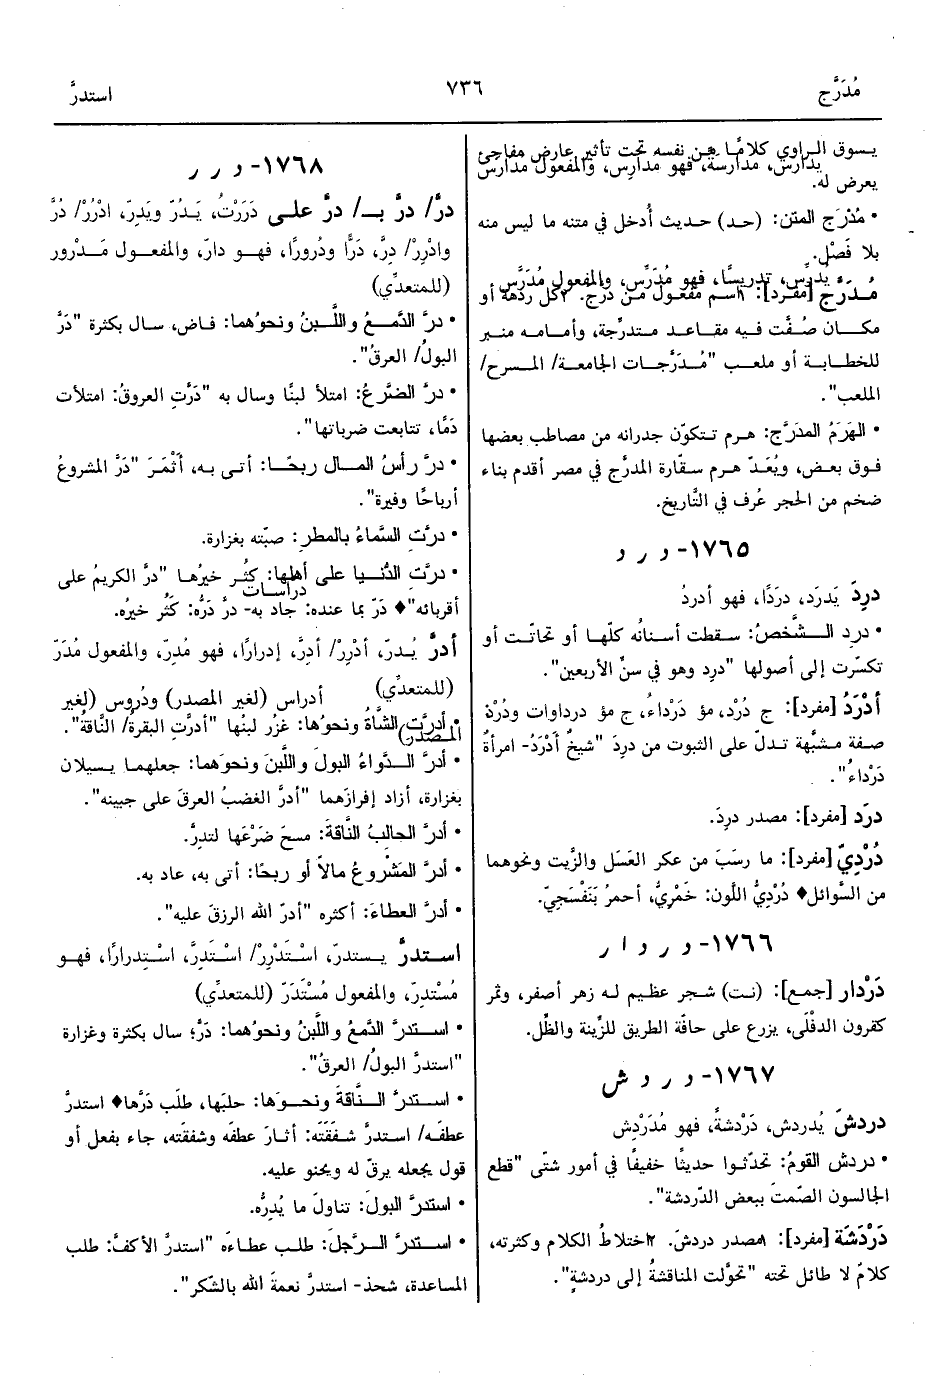 مُدَرَّج
٧٣٦
استدرَّ
يسوق الراوي كلامًا من نفسه تحت تأثير عارض مفاجئ
يدارس، مدارسةً، فهو مدارِس، والمفعول مدارَس
يعرض له.
• مُدْرَج المتن: (حد) حديث أُدخل في متنه ما ليس منه
بلا فَصْل.
يدرِّس، تدريسًا، فهو مُدَرِّس، والمفعول مُدَرَّس
مُدرَّج [مفرد]: ١اسم مفعول من درج. ٢كل ردهة أو
مكان صُفَّت فيه مقاعد متدرِّجة، وأمامه منبر
للخطابة أو ملعب "مُدرَّجات الجامعة/ المسرح/
الملعب".
• الهَرَمُ المدَرَّج: هرم تتكوّن جدرانه من مصاطب بعضها
فوق بعض، ويُعَدّ هرم سقّارة المدرَّج في مصر أقدم بناء
ضخم من الحجر عُرف في التَّاريخ.
١٧٦٥- د ر د
درِدَ يَدرَد، درَدًا، فهو أدردُ
• درِد الشَّخصُ: سقطت أسنانُه كلّها أو تحاتّت أو
تكسّرت إلى أصولها "درِد وهو في سنّ الأربعين".
أدْرَدُ [مفرد]: ج دُرْد، مؤ دَرْداءُ، ج مؤ درداوات ودُرْد
صفة مشبَّهة تدلّ على الثبوت من درِدَ "شيخٌ أدْرَدُ- امرأةٌ
دَرْداءُ".
درَد [مفرد]: مصدر درِدَ.
دُرْدِيّ [مفرد]: ما رسَبَ من عكر العَسَل والزَّيت ونحوهما
من السَّوائل♦ دُرْدِيُّ اللّون: خَمْرِيُّ، أحمرُ بَنَفْسَجِيّ.
١٧٦٦- د ر د ا ر
دَرْدار [جمع]: (نت) شجر عظيم له زهر أصفر، وثمر
كقرون الدفْلَى، يزرع على حافّة الطريق للزِّينة والظِّل.
١٧٦٧- د ر د ش
دردشَ يُدردش، دَرْدشةً، فهو مُدَرْدِش
• دردش القومُ: تحدّثوا حديثًا خفيفًا في أمور شتّى "قطع
الجالسون الصَّمتَ ببعض الدّردشة".
دَرْدَشَة [مفرد]: ١مصدر دردشَ. ٢اختلاطُ الكلام وكثرته،
كلامٌ لا طائل تحته "تحوَّلت المناقشةُ إلى دردشةٍ".
١٧٦٨- د ر ر
درَّ/ درَّ بـ/ درَّ على دَرَرْتُ، يَدُرّ ويَدِرّ، ادْرُرْ/ دُرَّ
وادْرِرْ/ دِرَّ، دَرًّا ودُرورًا، فهو دارّ، والمفعول مَدْرور
(للمتعدِّي)
• درَّ الدَّمعُ واللَّبنُ ونحوُهما: فاض، سال بكثرة "دَرَّ
البولُ/ العرقُ".
• درَّ الضَّرْعُ: امتلأ لبنًا وسال به "دَرَّتِ العروقُ: امتلأت
دَمًا، تتابعت ضرباتها".
• درَّ رأسُ المال ربحًا: أتى به، أثْمَرَ "دَرَّ المشروعُ
أرباحًا وفيرة".
• درَّتِ السَّماءُ بالمطر: صبّته بغزارة.
• درَّتِ الدُّنيا على أهلها: كثُر خيرُها "درَّ الكريمُ على
دراسات
أقربائه"♦ دَرّ بما عنده: جاد به- درَّ دَرُّه: كَثُر خيرُه.
أدرَّ يُدرّ، أدْرِرْ/ أدِرَّ، إدرارًا، فهو مُدِرّ، والمفعول مُدَرّ
(للمتعدِّي)
أدراس (لغير المصدر) ودُروس (لغير
المصدر)
• أدرَّتِ الشَّاةُ ونحوُها: غزُر لبنُها "أدرَّتِ البقرةُ/ النَّاقةُ".
• أدرَّ الدَّواءُ البولَ واللَّبنَ ونحوَهما: جعلهما يسيلان
بغزارة، أزاد إفرازَهما "أدرَّ الغضبُ العرقَ على جبينه".
• أدرَّ الحالبُ النَّاقةَ: مسحَ ضَرْعَها لتدِرَّ.
• أدرَّ المَشْروعُ مالاً أو ربحًا: أتى به، عاد به.
• أدرَّ العطاءَ: أكثره "أدرّ الله الرزقَ عليه".
استدرَّ يستدرّ، اسْتَدْرِرْ/ اسْتَدِرَّ، اسْتِدرارًا، فهو
مُسْتدِرّ، والمفعول مُسْتَدَرّ (للمتعدِّي)
• استدرَّ الدَّمعُ واللَّبنُ ونحوُهما: دَرَّ؛ سال بكثرة وغزارة
"استدرَّ البولُ/ العرقُ".
• استدرَّ النَّاقةَ ونحوَها: حلبَها، طلَب دَرَّها♦ استدرَّ
عطفَه/ استدرَّ شفَقَتَه: أثارَ عطفَه وشفقته، جاء بفعل أو
قول يجعله يرقّ له ويحنو عليه.
• استدرَّ البولَ: تناولَ ما يُدِرُّه.
• استدرَّ الرَّجلَ: طلب عطاءَه "استدرَّ الأكفَّ: طلب
المساعدة، شحذ- استدرَّ نعمةَ الله بالشّكر".